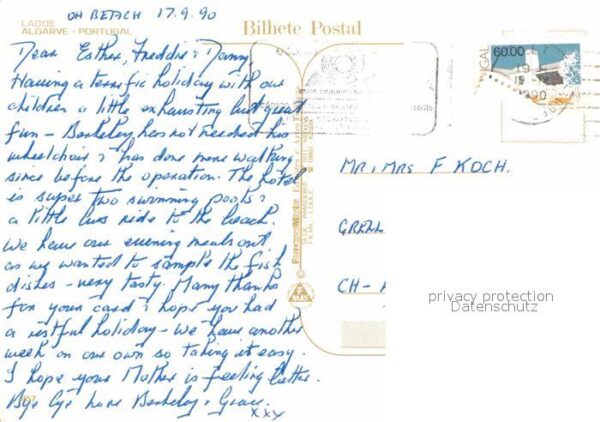 ON BEACH 17.9.90
LAGOS
ALGARVE - PORTUGAL
Bilhete Postal
Dear Esther, Freddie & Danny,
Having a terrific holiday with our
children a little exhausting but great
fun - Berkeley has not needed his
wheelchair & has done more walking
since before the operation. The hotel
is super two swimming pools &
a little bus ride to the beach.
We have our evening meals out
as we wanted to sample the fish
dishes - very tasty. Many thanks
for your card & hope you had
a restful holiday - we have another
week on our own so taking it easy.
I hope your Mother is feeling better.
Bye bye love Berkeley & Grace.
xxx
60.00
1990
MR & MRS F KOCH.
CH-
privacy protection
Datenschutz